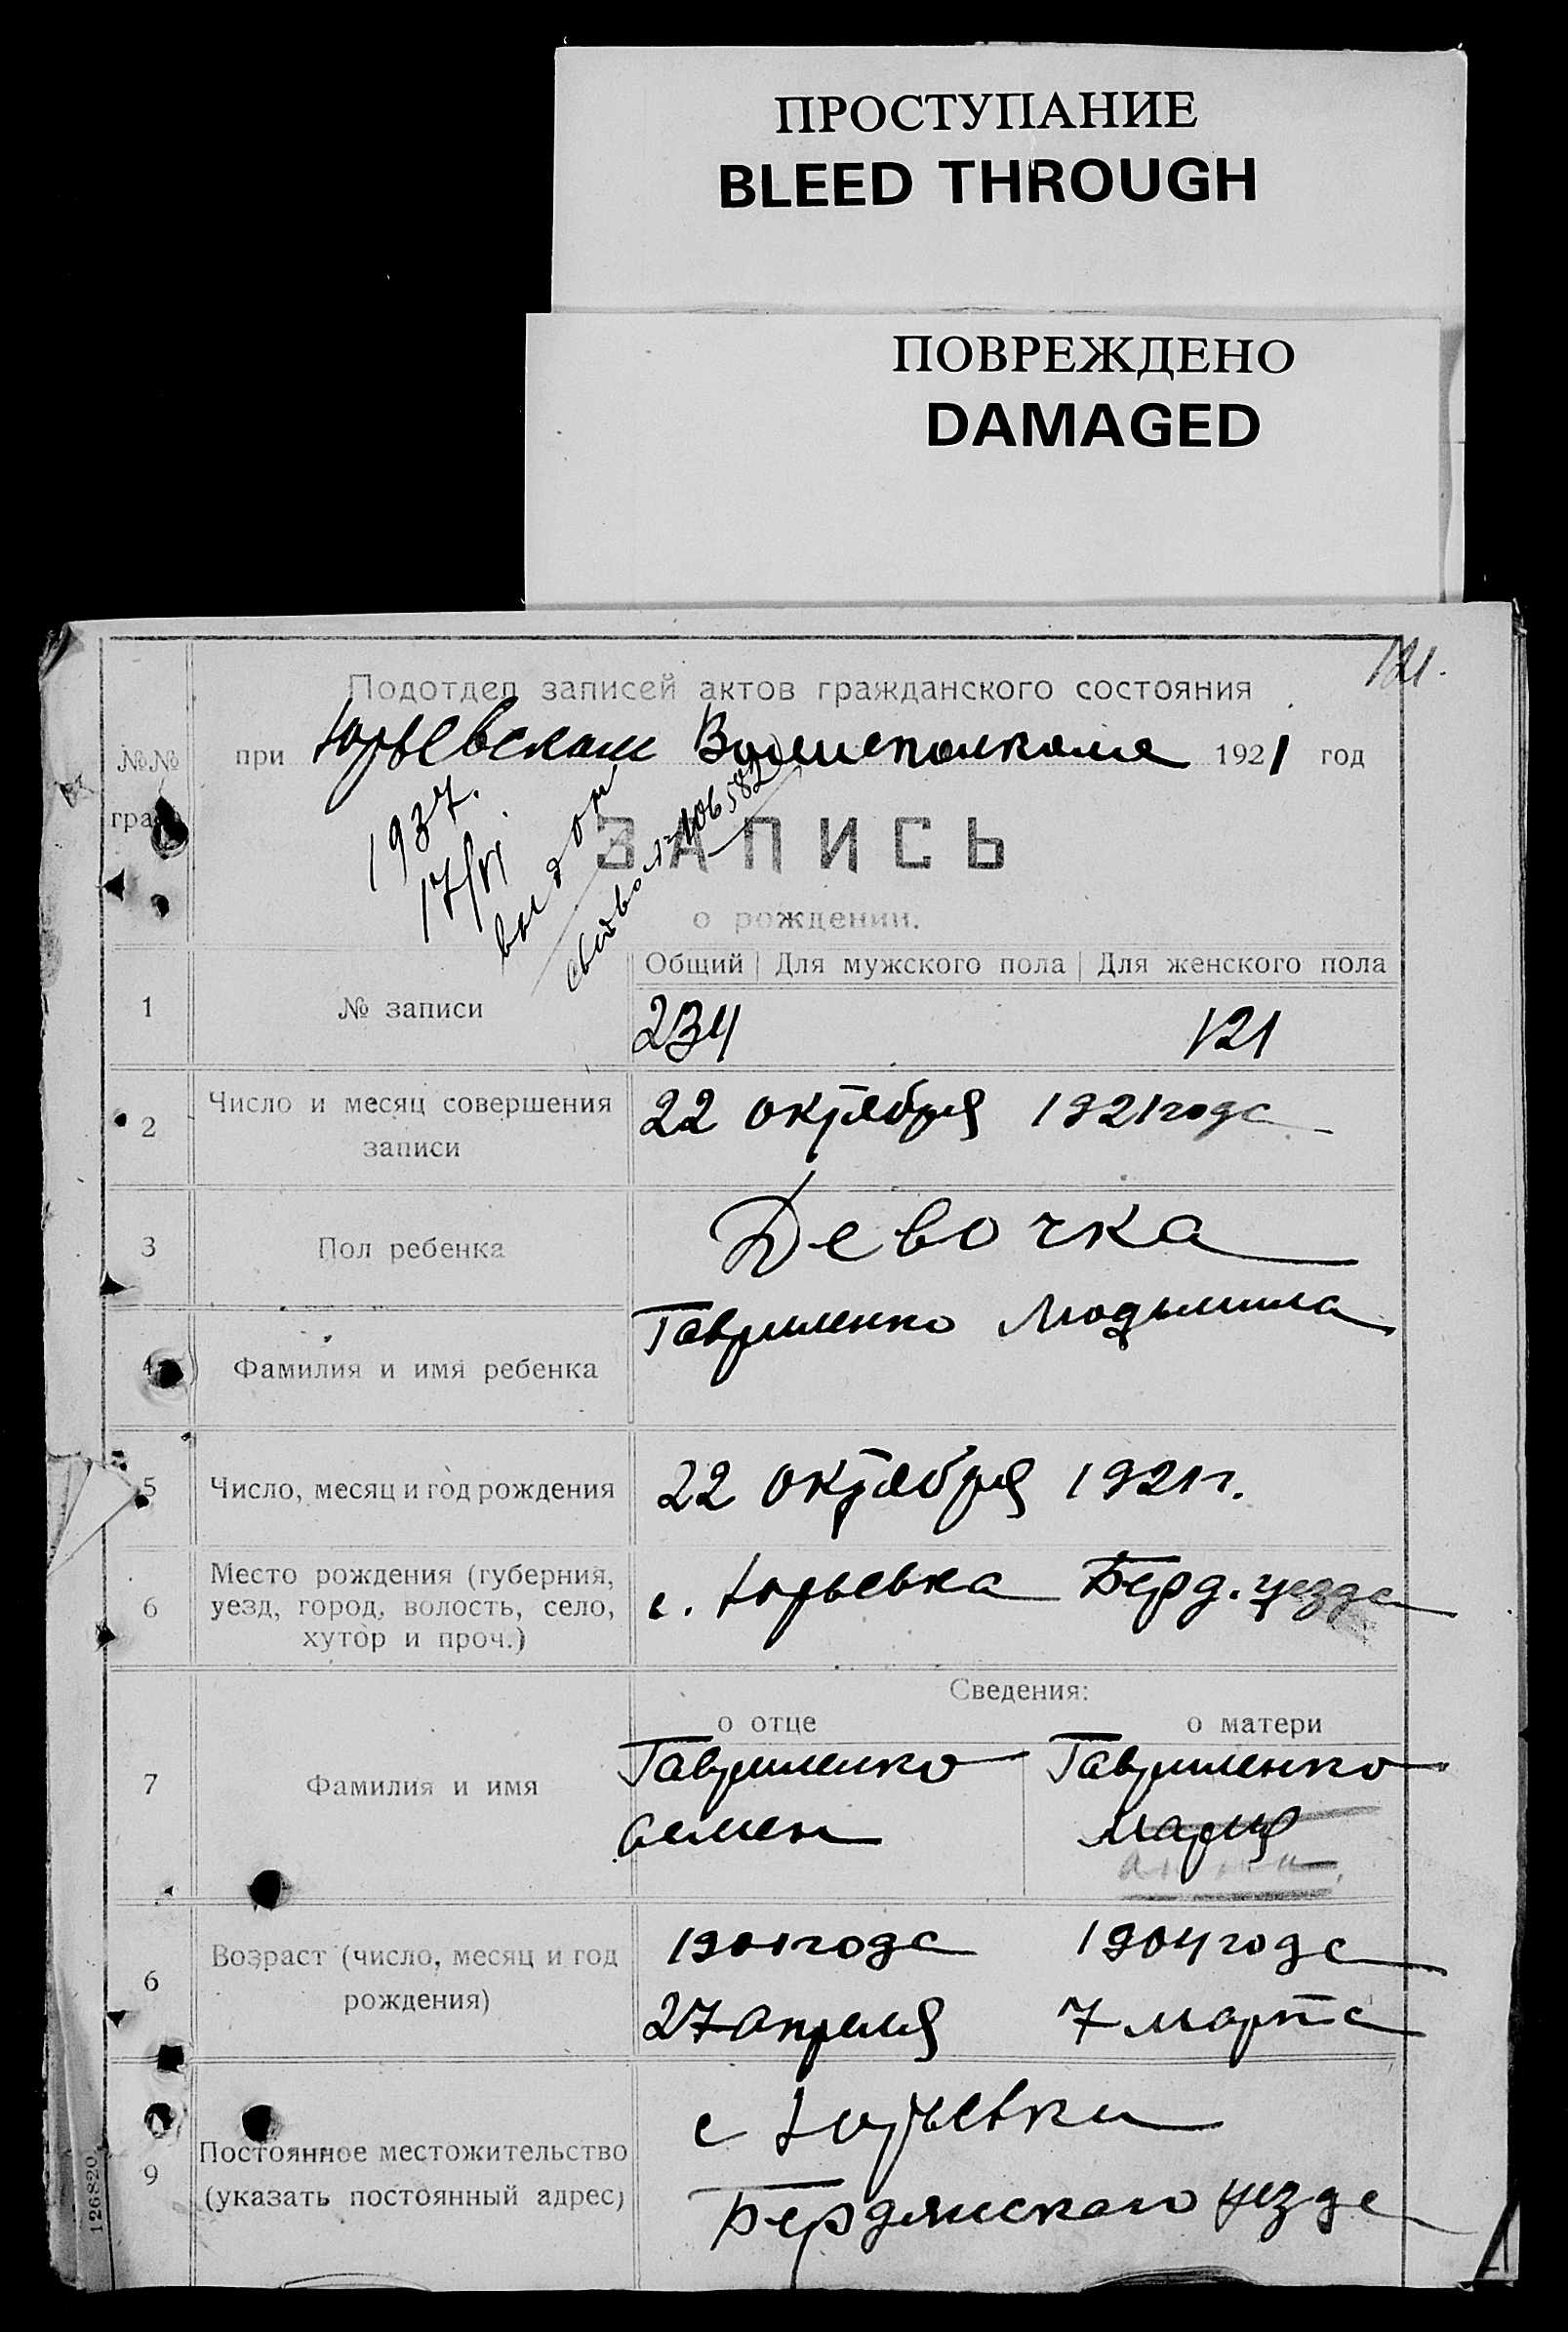 ПРОСТУПАНИЕ
BLEED THROUGH
ПОВРЕЖДЕНО
DAMAGED
121.
Подотдел записей актов гражданского состояния
№№
граф
при Юрьевском Волисполкоме 1921 год
1937.
17/VI
ЗАПИСЬ
о рождении.
Общий Для мужского пола Для женского пола
1 № записи 234 121
2 Число и месяц совершения
записи
22 октября 1921 года
3 Пол ребенка Девочка
4 Фамилия и имя ребенка Гавриленко Людмила
5 Число, месяц и год рождения 22 октября 1921 г.
6 Место рождения (губерния,
уезд, город, волость, село,
хутор и проч.)
с. Юрьевка Берд. уезда
Сведения:
о отце о матери
7 Фамилия и имя
Гавриленко Гавриленко
Семен Мария
6 Возраст (число, месяц и год
рождения)
1901 года 1904 года
27 апреля 7 марта
9 Постоянное местожительство
(указать постоянный адрес)
с Юрьевки
Бердянского уезда
126820